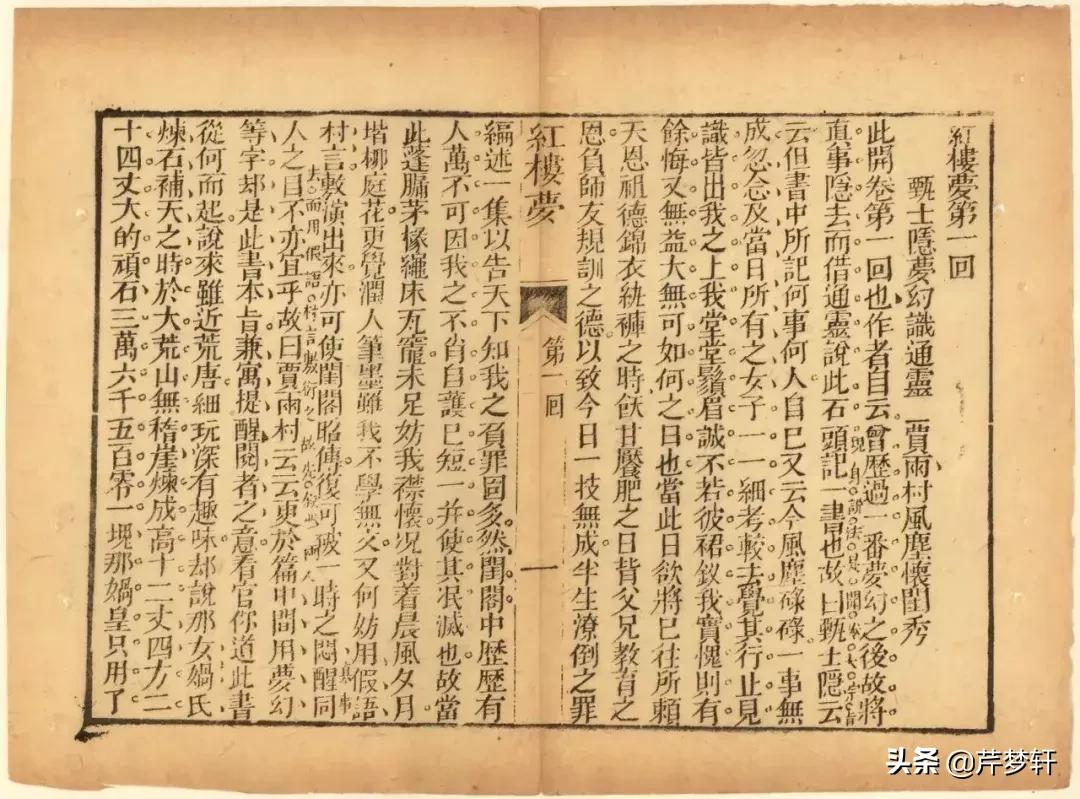 紅樓夢第一回
甄士隱夢幻識通靈　賈雨村風塵懷閨秀
此開卷第一回也作者自云曾歷過一番夢幻之後故將
現身說法是開
真事隱去而借通靈說此石頭記一書也故曰甄士隱云
云但書中所記何事何人自己又云今風塵碌碌一事無
成忽念及當日所有之女子一一細考較去覺其行止見
識皆出我之上我堂堂鬚眉誠不若彼裙釵我實愧則有
餘悔又無益大無可如何之日也當此日欲將已往所賴
天恩祖德錦衣紈褲之時飫甘饜肥之日背父兄教育之
恩負師友規訓之德以致今日一技無成半生潦倒之罪
紅樓夢　第一回　一
編述一集以告天下知我之負罪固多然閨閣中歷歷有
人萬不可因我之不肖自護己短一并使其泯滅也故當
此蓬牖茅椽繩床瓦竈未足妨我襟懷况對着晨風夕月
堦柳庭花更覺潤人筆墨雖我不學無文又何妨用假語
真事
村言敷演出來亦可使閨閣昭傳復可破一時之悶醒同
去而用假語村言敷衍之故先敘此兩人
人之目不亦宜乎故曰賈雨村云云更於篇中間用夢幻
等字却是此書本旨兼寓提醒閱者之意看官你道此書
從何而起說來雖近荒唐細玩深有趣味却說那女媧氏
煉石補天之時於大荒山無稽崖煉成高十二丈四方二
十四丈大的頑石三萬六千五百零一塊那媧皇只用了
头条 @芹梦轩